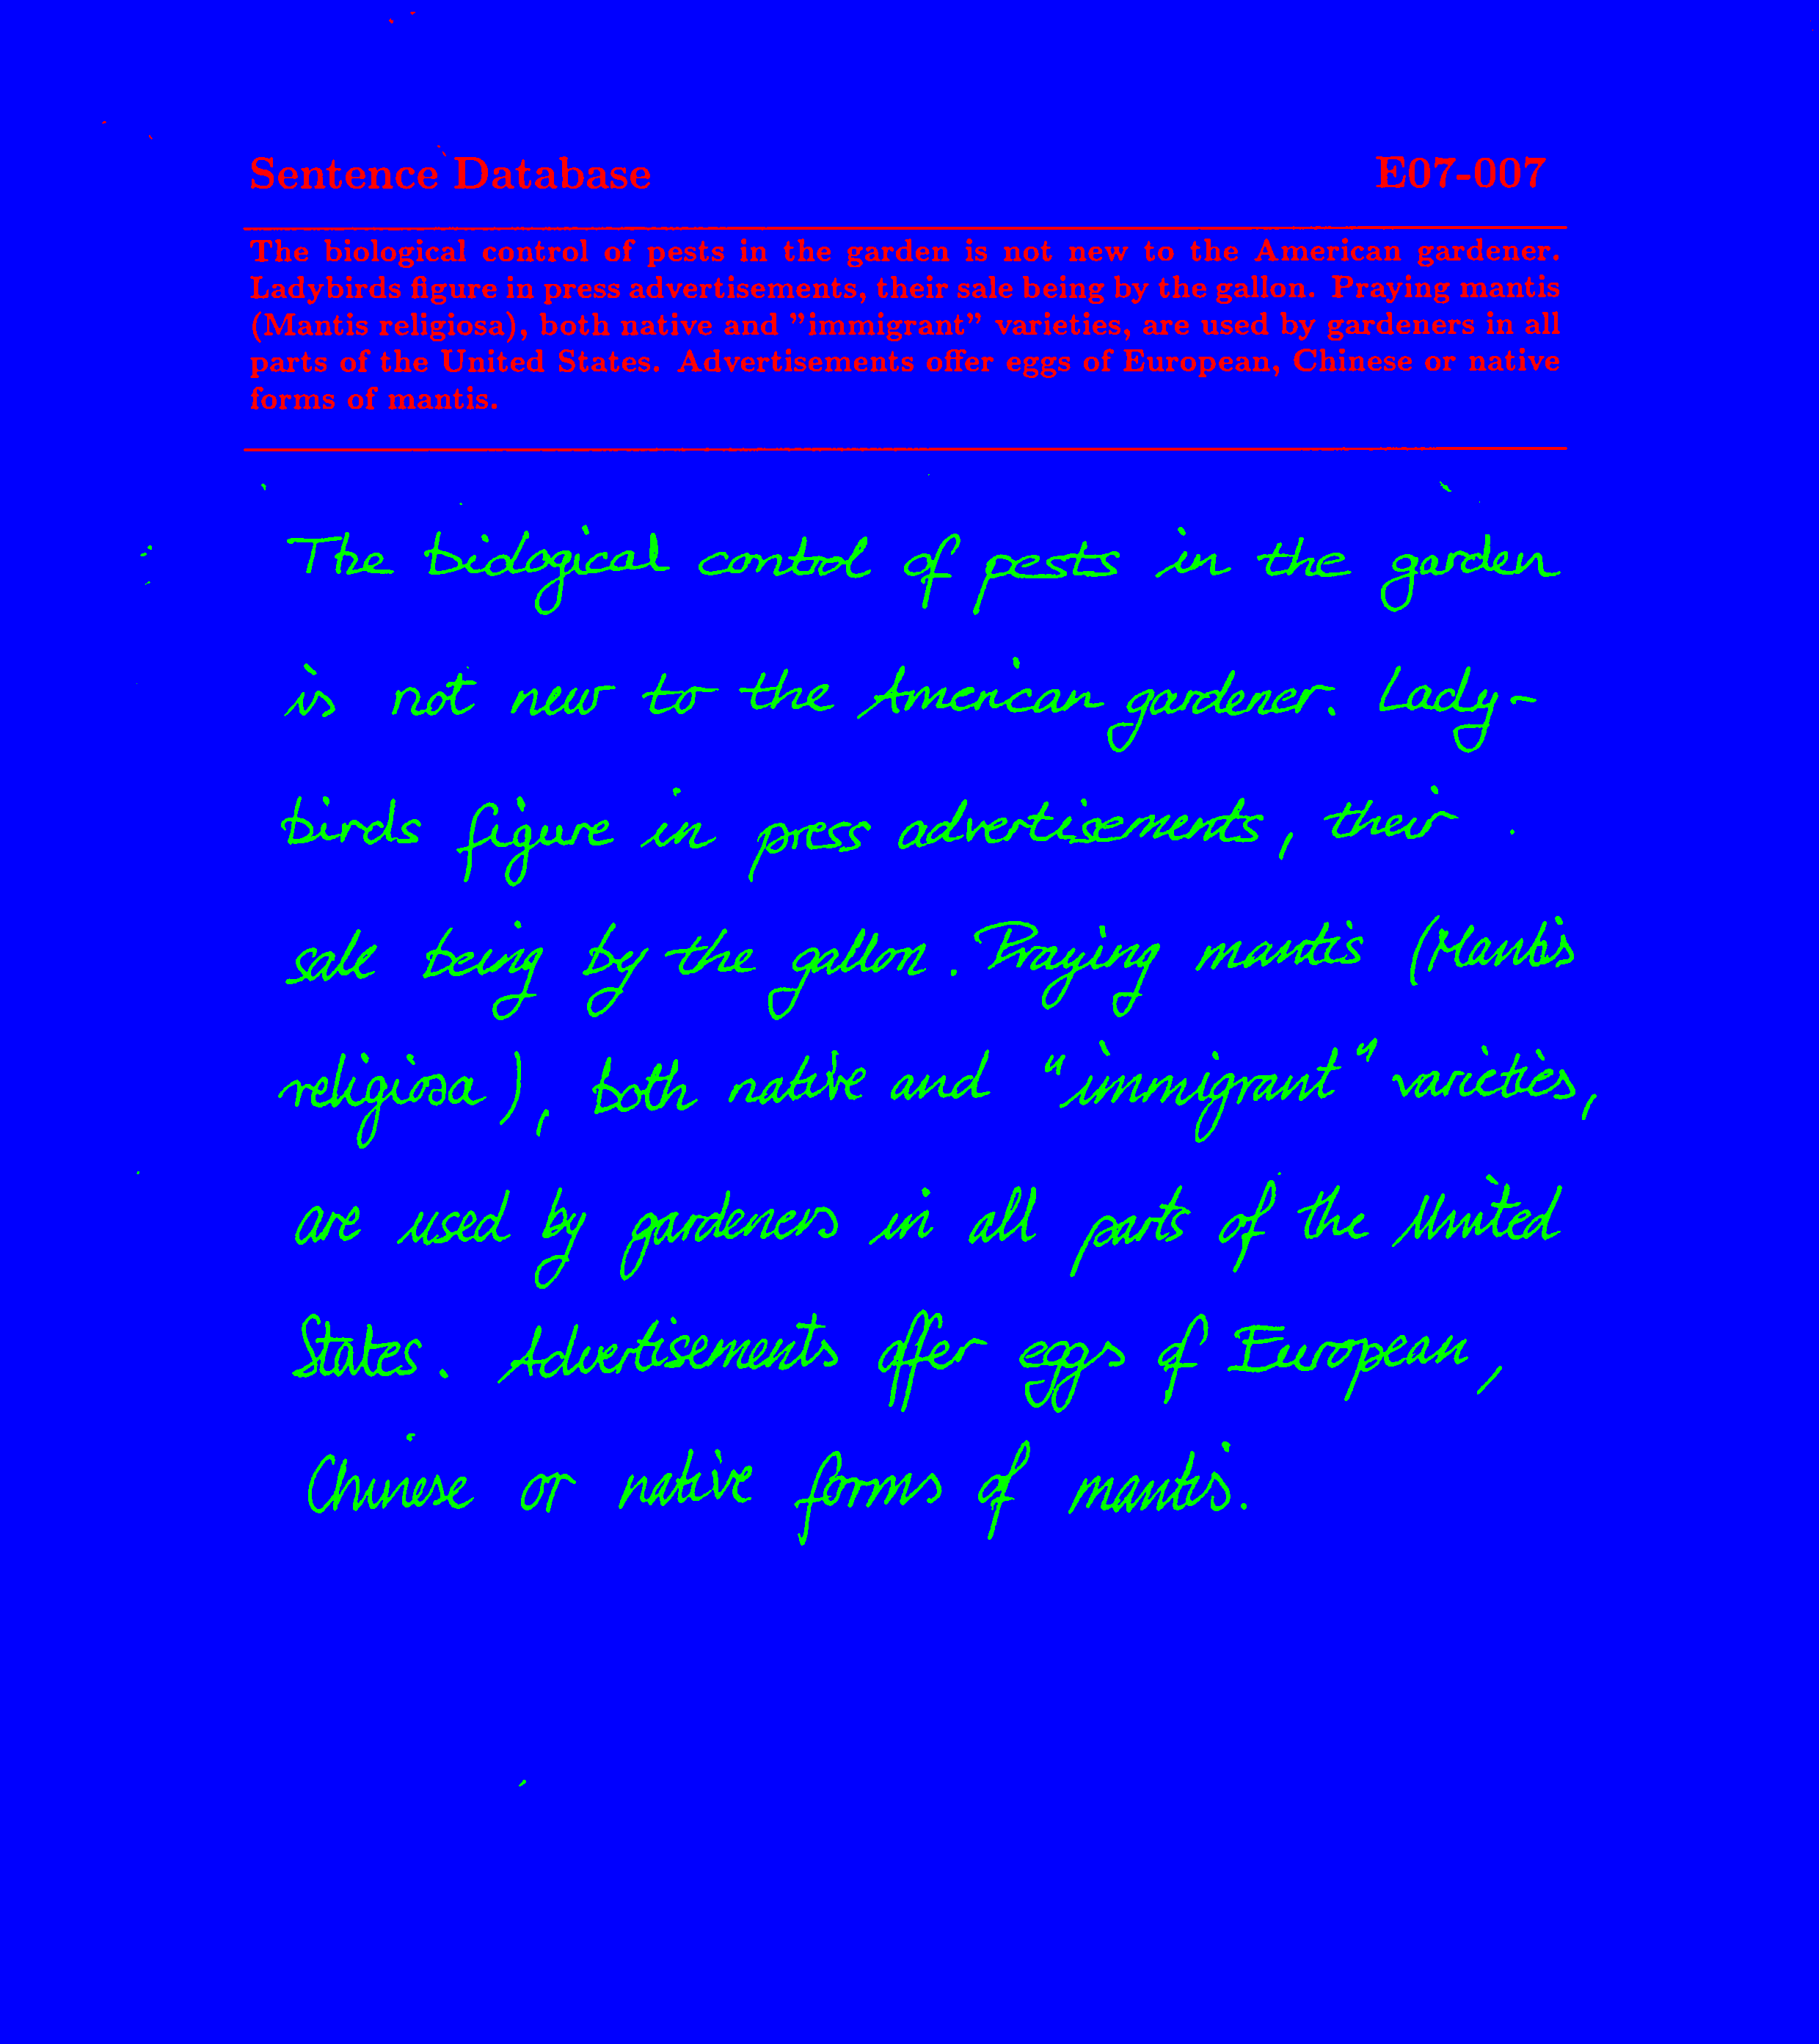 Sentence Database E07-007
The biological control of pests in the garden is not new to the American gardener.
Ladybirds figure in press advertisements, their sale being by the gallon. Praying mantis
(Mantis religiosa), both native and "immigrant" varieties, are used by gardeners in all
parts of the United States. Advertisements offer eggs of European, Chinese or native
forms of mantis.
The biological control of pests in the garden
is not new to the American gardener. Lady-
birds figure in press advertisements, their
sale being by the gallon. Praying mantis (Mantis
religiosa), both native and "immigrant" varieties,
are used by gardeners in all parts of the United
States. Advertisements offer eggs of European,
Chinese or native forms of mantis.